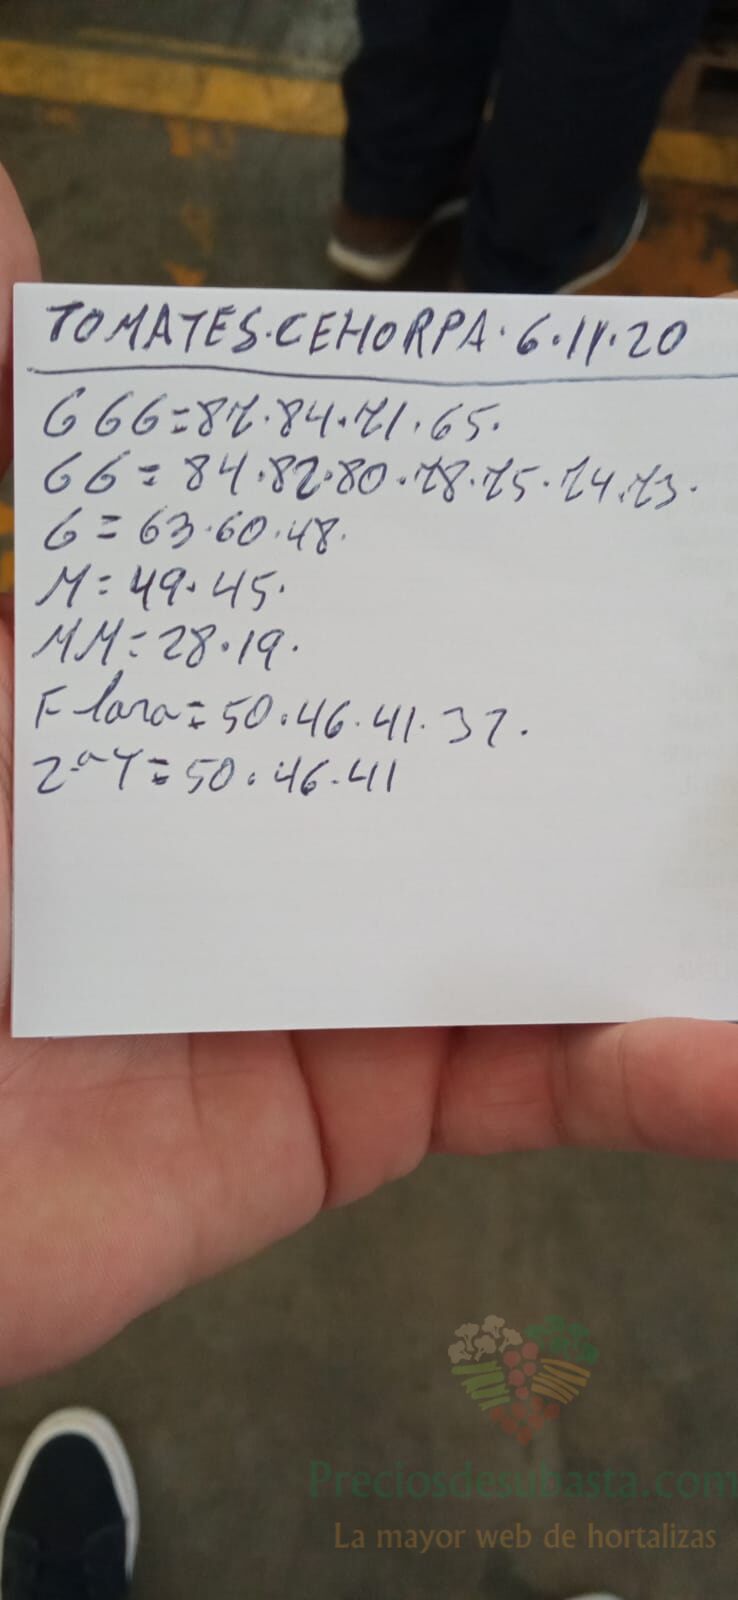 TOMATES.CEHORPA.6.11.20
GGG=87.84.71.65.
GG=84.82.80.78.75.74.73.
G=63.60.48.
M=49.45.
MM=28.19.
Flora=50.46.41.
2ªY=50.46.41
Preciosdesubasta.com
La mayor web de hortalizas